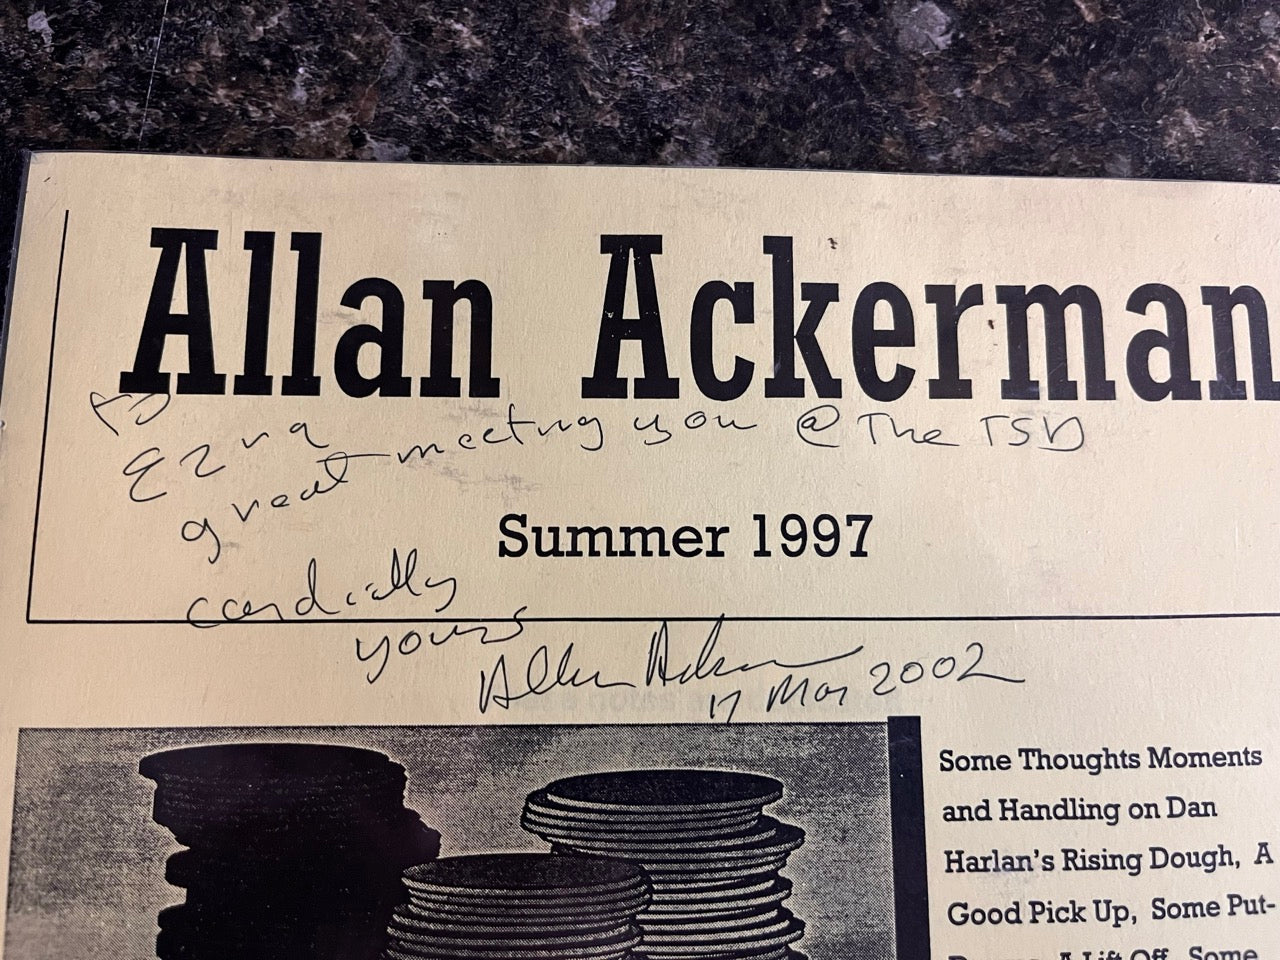 Allan Ackerman
To
Ezra
great meeting you @ The TSD
Summer 1997
cordially
yours
Allan Ackerman
17 Mar 2002
Some Thoughts Moments
and Handling on Dan
Harlan's Rising Dough, A
Good Pick Up, Some Put-
A Lift Off, Some